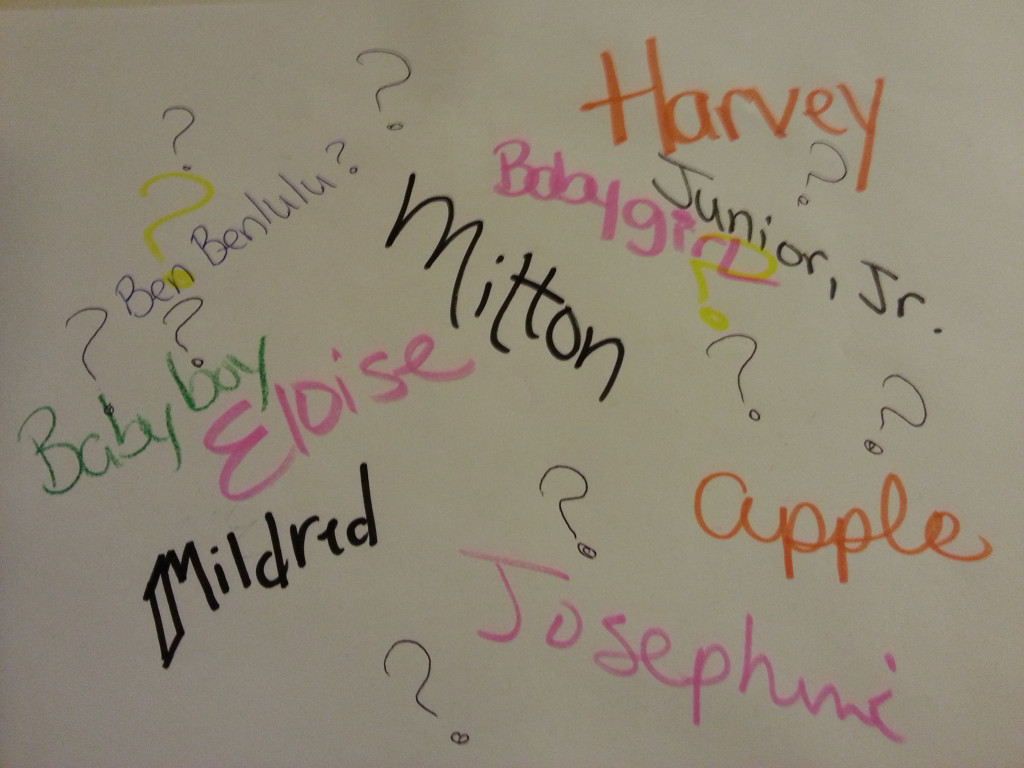 Harvey
?
?
Babygirl
Junior, Jr.
?
?
?
Ben Benlulu?
Mitton
?
?
?
?
Babyboy
Eloise
?
apple
Mildred
?
Josephine
?